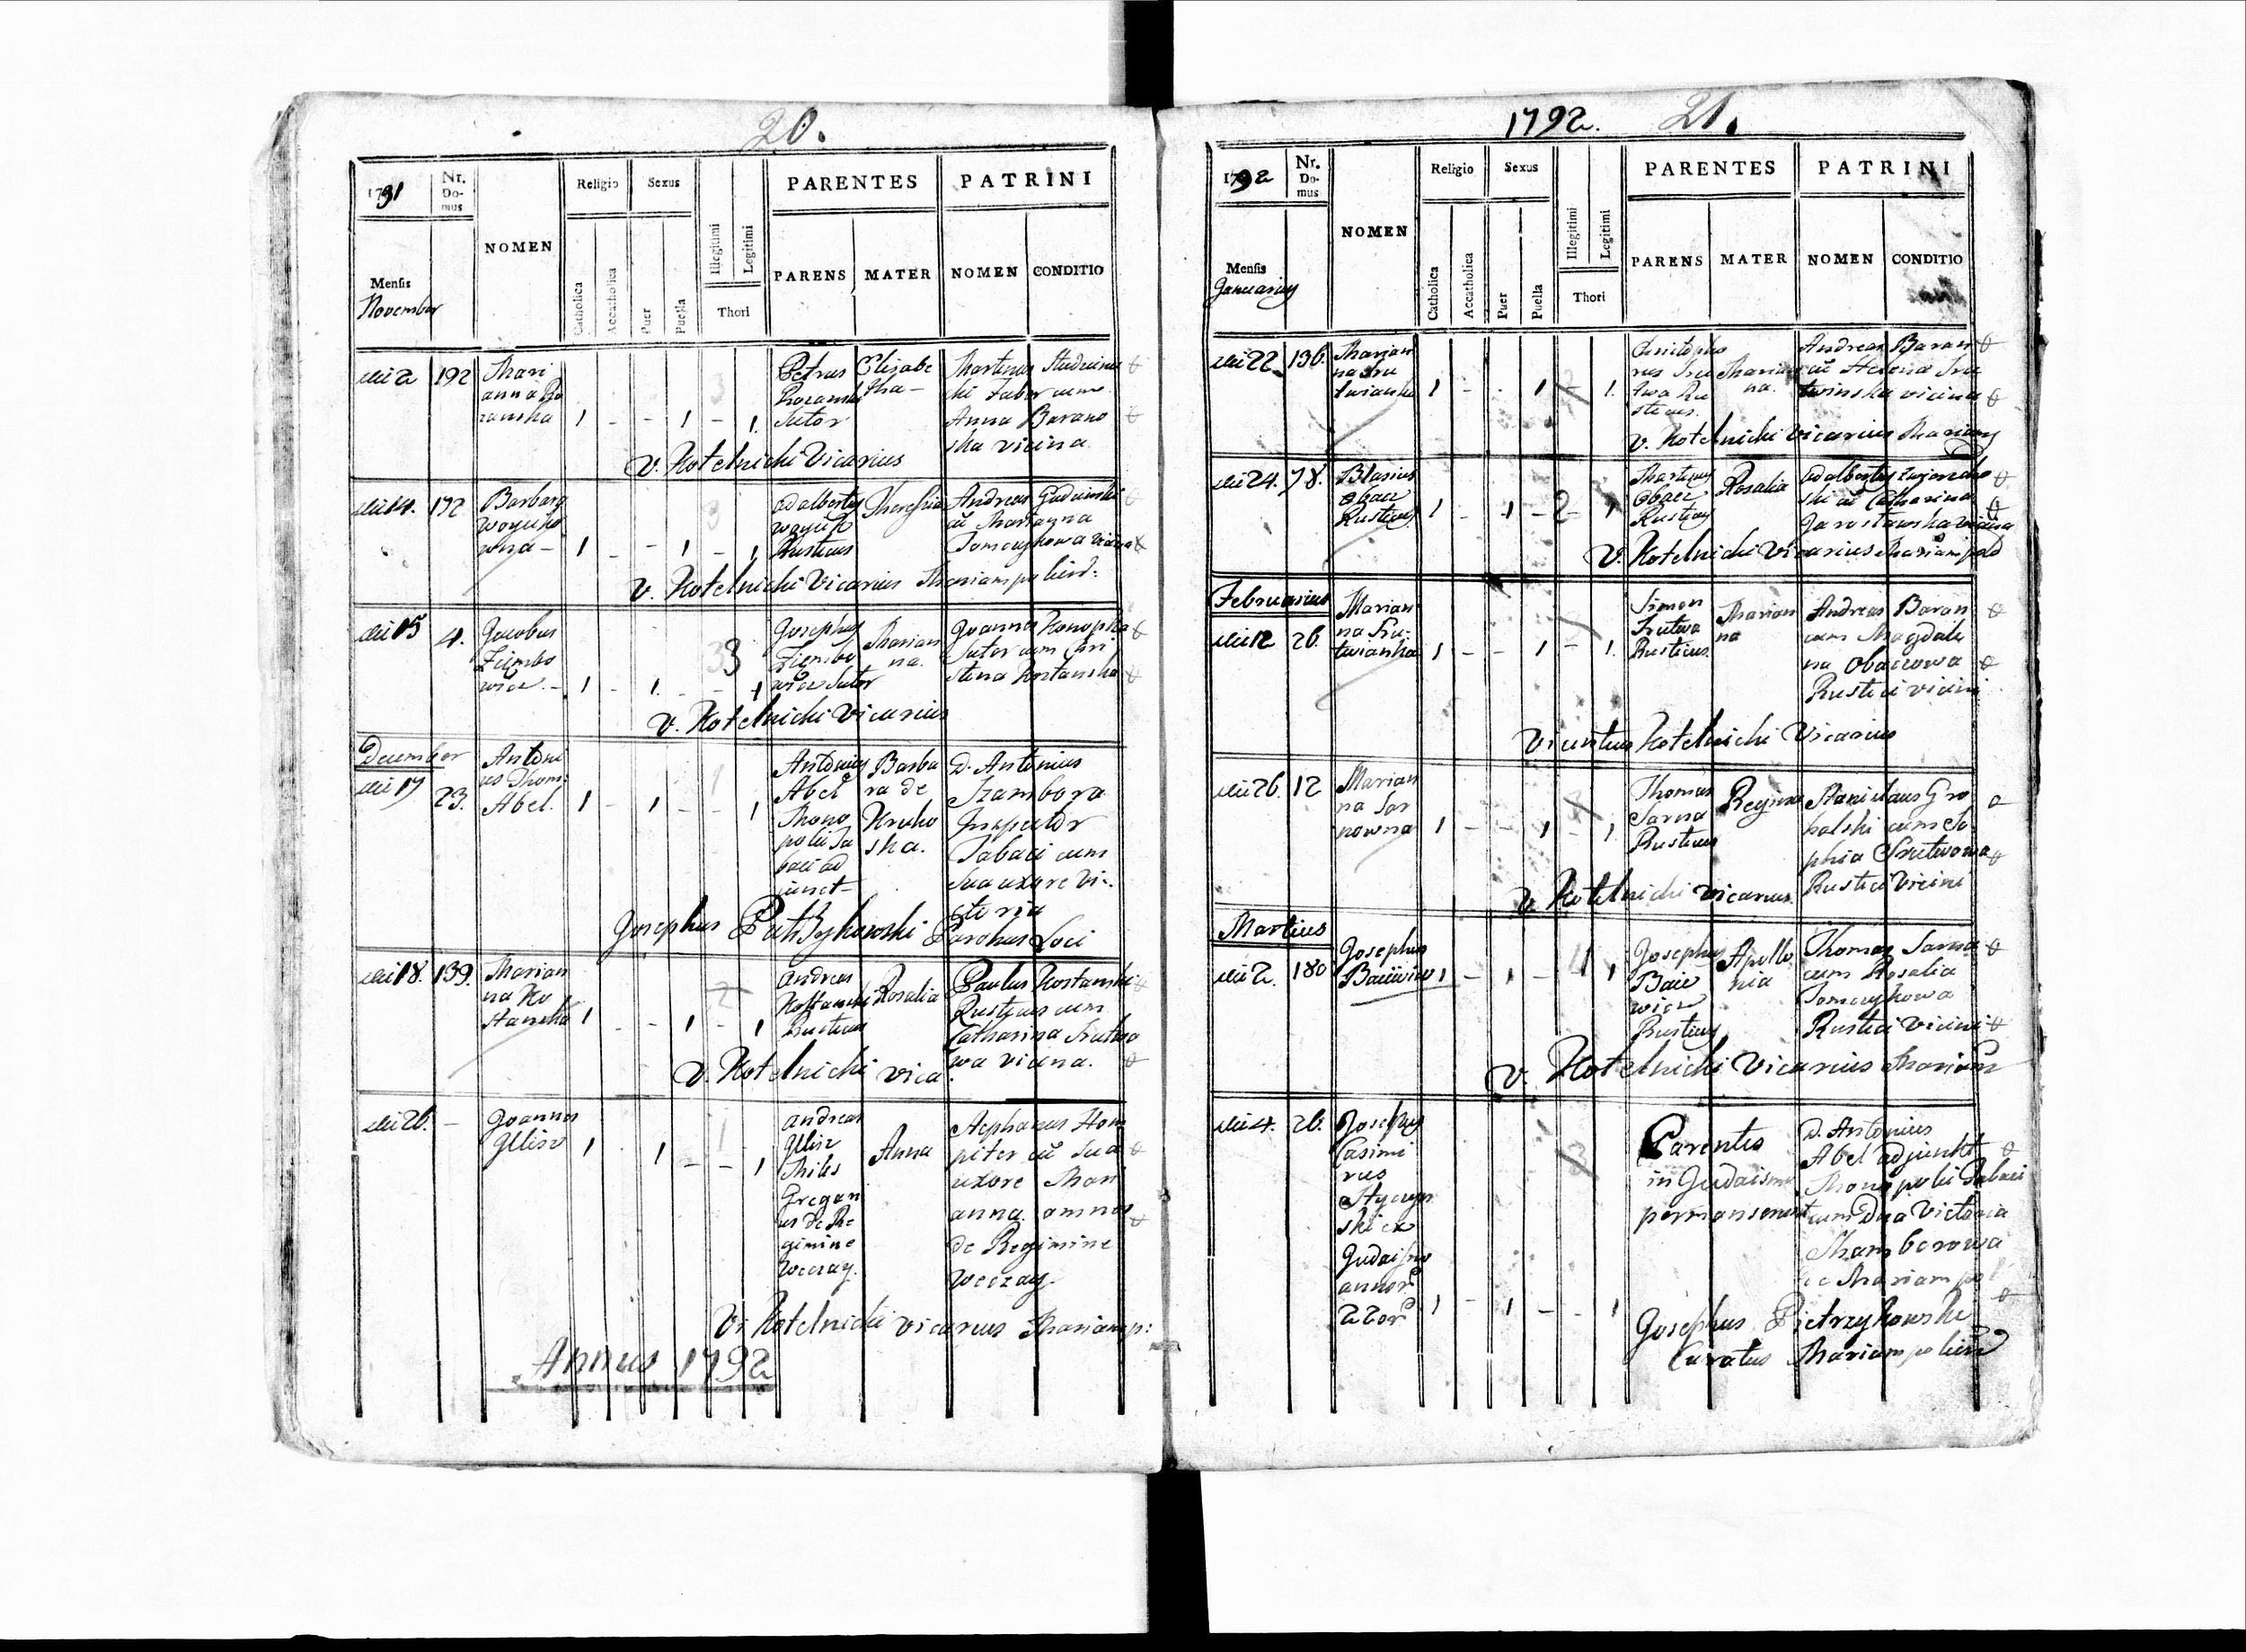 20.
1791
Nr. Do- mus
NOMEN
Religio
Sexus
PARENTES
PATRINI
Catholica
Accatholica
Puer
Puella
Illegitimi
Legitimi
Thori
PARENS
MATER
NOMEN
CONDITIO
Mensis
November
die 2 192 Mari
anna Ro
zanska 1 - - 1 - 1.
Petrus
Rozanski
Sutor
Elisabe
tha -
Martinus
ski Faber cum
Anna Barano
ska vicina
V. Kotelnicki Vicarius
die 14. 172 Barbara
Woyciko
wna - 1 - - 1 - 1
Adalbertus
Woyciko
Rusticus
Theressia
Andreas
cũ Marianna
Tomczykowa vicina
V. Kotelnicki Vicarius Mariampoliens:
die 15 4. Jacobus
Ziembo
wicz. - 1 - 1. - - 1
3
Josephus
Ziembo
wicz Sutor
Marian
na.
Joannes Konopka
Sutor cum Chri
stina Kostanska
V. Kotelnicki Vicarius
December
die 17 23. Antoni
us Thom:
Abel. 1 - 1 - - 1
Antonius
Abel
Mono
polii Ta
baci ad
junct-
Barba
ra de
Kruko
ska.
D. Antonius
Szambora
Inspector
Tabaci cum
sua uxore Vi-
ctoria
Josephus Parochus Loci
die 18. 139. Marian
na Ko
stanska 1 - - 1 - 1
Andreas
Kostanski
Rusticus
Rosalia
Paulus Kostanski
Rusticus cum
Catharina Srutwo
wa vicina.
V. Kotelnicki Vica.
die 26. - Joannes
Glisz 1 - 1 - - 1
Andreas
Glisz
Miles
Gregari
us de Re
gimine
Weczay.
Anna
Stephanus Hom
piter cũ sua
uxore Mari
anna. omnes
de Regimine
Weczay.
Vi Kotelnicki Vicarius Mariamp:
Annus 1792
1792. 21.
1792
Nr. Do- mus
NOMEN
Religio
Sexus
PARENTES
PATRINI
Catholica
Accatholica
Puer
Puella
Illegitimi
Legitimi
Thori
PARENS
MATER
NOMEN
CONDITIO
Mensis
Januarius
die 22. 136. Marian
na Sru
twianka 1 - - 1 - 1.
Christopho
rus Sru
twa Ru
sticus.
Marian
na.
Andreas Baran
cũ Helena Sru
twinska vicina
V. Kotelnicki Vicarius Mariamp
die 24. 78. Blasius
Obacz
Rusticus 1 - 1 - 2 - 1
Martinus
Obacz
Rusticus
Rosalia
Adalbertus
ski cũ Catharina
Jaroslawska vicina
V. Kotelnicki Vicarius Mariampol
Februarius
die 12 26. Marian
na Sru-
twianka 1 - - 1 - 1.
Simon
Srutwa
Rusticus.
Marian
na
Andreas Baran
cum Magdale
na Obaczowa
Rustici vicini
Vicentius Kotelnicki Vicarius
die 26. 12 Marian
na Sar
nowna 1 - - 1 - 1
Thomas
Sarna
Rusticus
Regina
Stanislaus Gro
halski cum So
phia Srutwowa
Rustici Vicini
V. Kotelnicki Vicarius.
Martius
die 2. 180 Josephus
1 - 1 - 1
Josephus
Baie
wicz
Rusticus
Apollo
nia
Thomas Sarna
cum Rosalia
Tomczykowa
Rustici Vicini
V. Kotelnicki Vicarius Mariamp
die 4. 26. Josephus
Casimi
rus
Styczyn
ski ex
Judaismo
annor
22or 1 - 1 - - 1
Parentes
in Judaismo
permanserunt
D. Antonius
Abel adjunkt
Monopolii Tabaci
cum Dna Victoria
Shamborowa
de Mariampol
Josephus Pietrzykowski
Curatus Mariampoliens